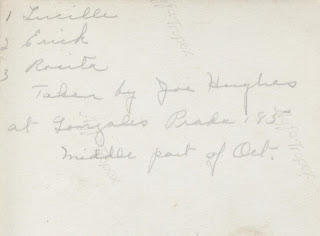 1 Lucille
2 Erick
3 Rosita
Taken by Joe Hughes
at Gonzales Prada 185
Middle part of Oct.